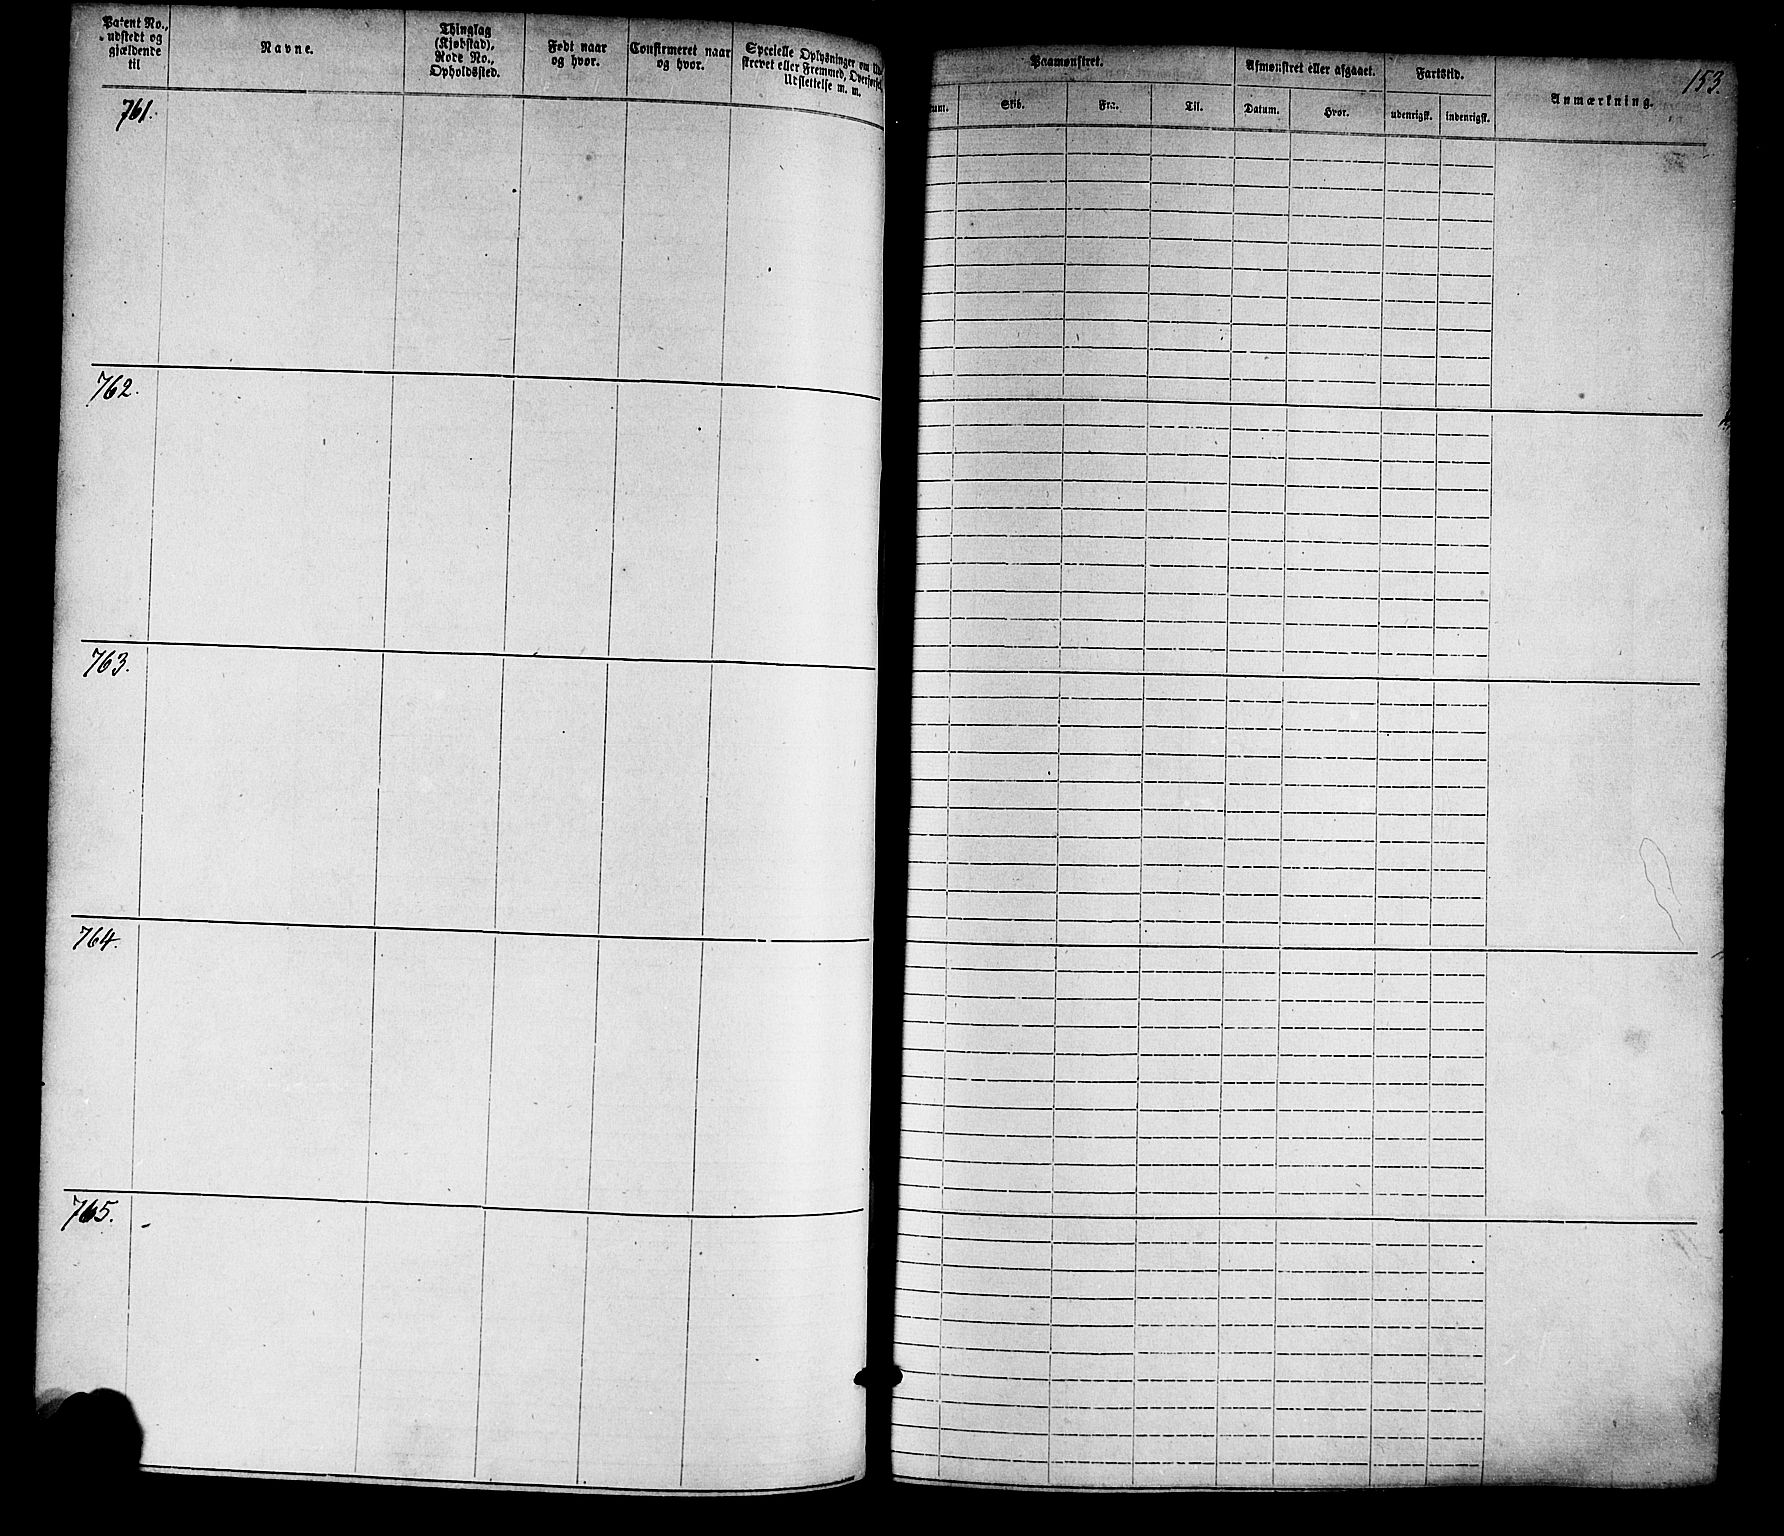 Patent No., udstedt og gjældende til
Navne.
Thinglag (Kjøbstad), Rode No., Opholdssted.
Født naar og hvor.
Confirmeret naar og hvor.
Specielle Oplysninger om
skrevet eller Fremmed,
Udslettelse m. m.
Paamønstret.
Afmønstret eller afgaaet.
Fartstid.
153.
Skib.
Fra.
Til.
Datum.
Hvor.
udenrigsk.
indenrigsk.
Anmærkning.
761.
762.
763.
764.
765.